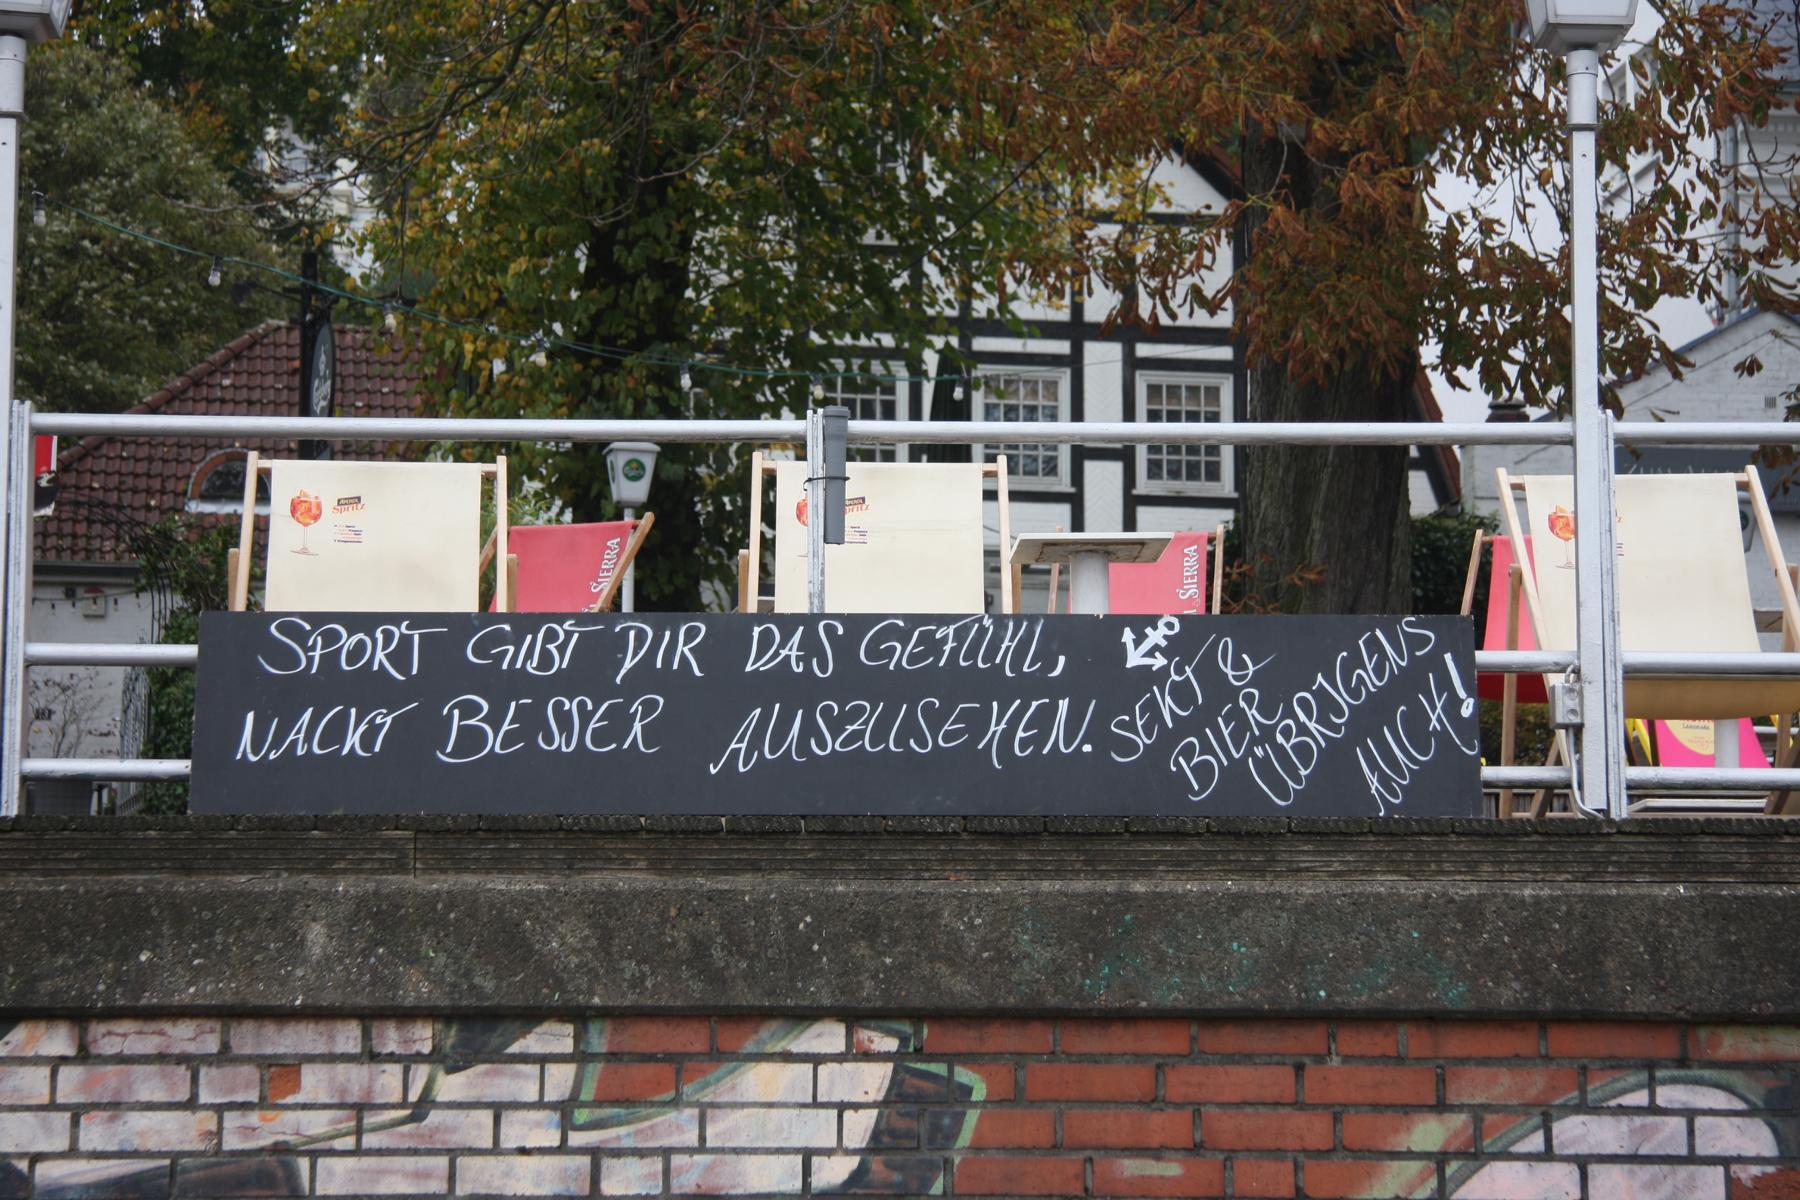 SPORT GIBT DIR DAS GEFÜHL,
NACKT BESSER AUSZUSEHEN.
SEKT &
BIER
ÜBRIGENS
AUCH!
APEROL
Spritz
SIERRA
APEROL
Spritz
SIERRA